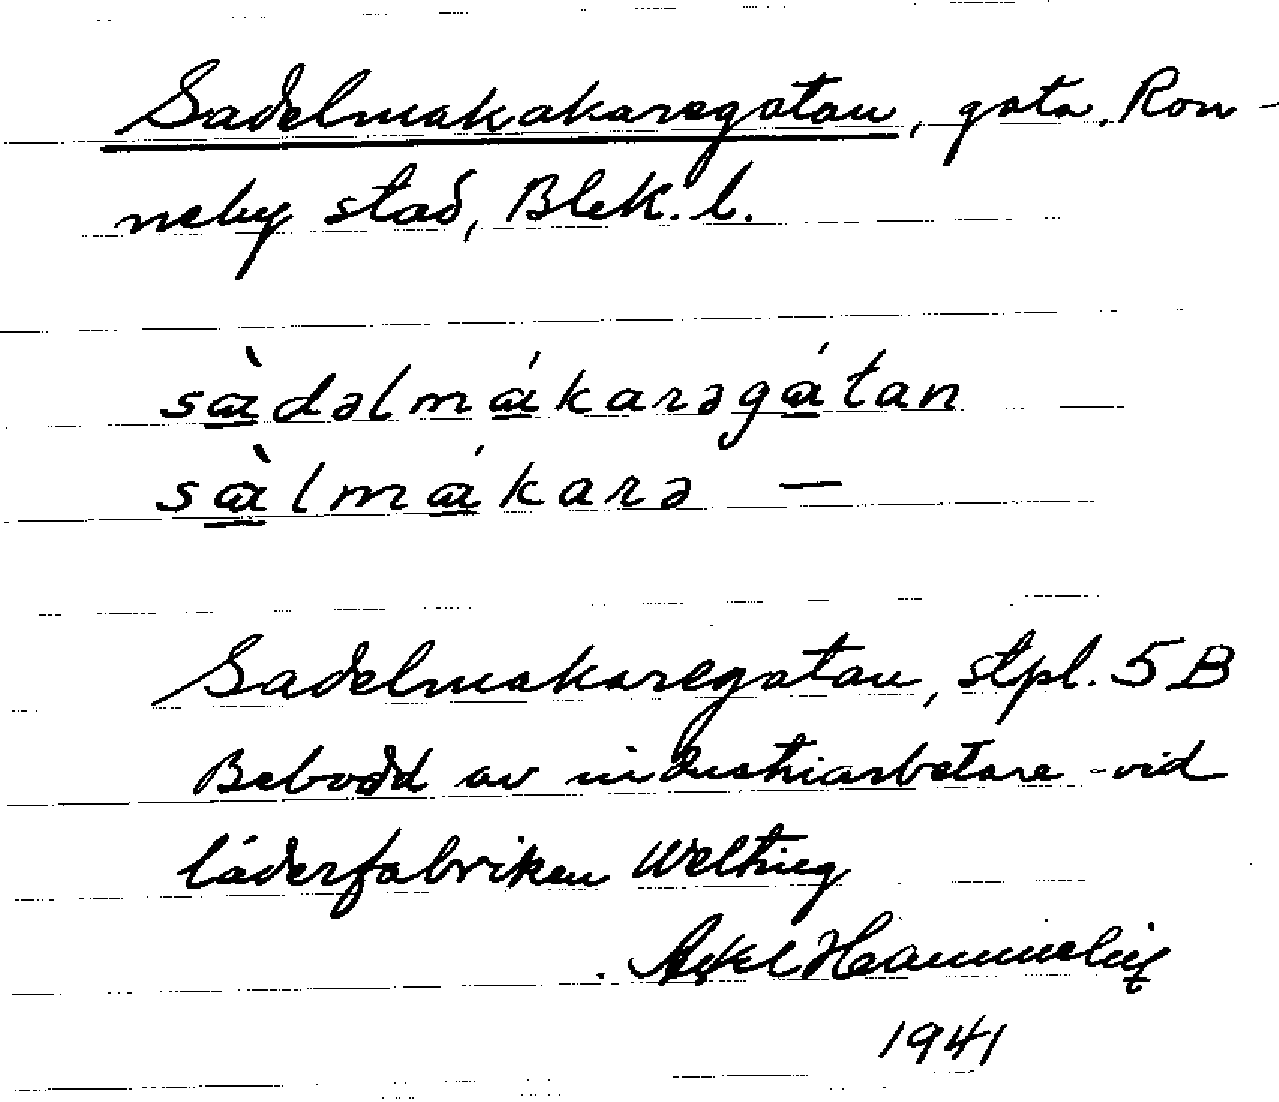 Sadelmakakaregatan, gata. Ron-
neby stad, Blek. l.
sàdəlmákarəgátan
sàlmákarə —
Sadelmakaregatan, stpl. 5B
Bebodd av industriarbetare vid
läderfabriken Weltting
Axel Hammelig
1941